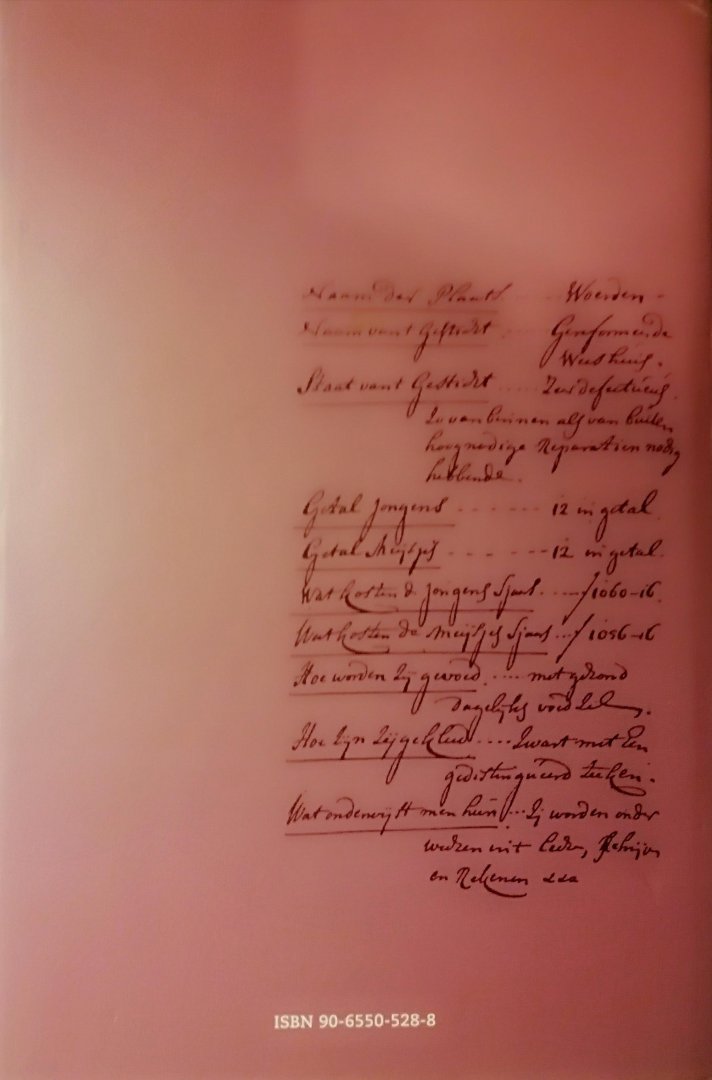 Naam der Plaats ---- Woerden -
Naam vant Gesticht ---- Gereformeerde
Weeshuis.
Staat vant Gesticht ..... Zeer defectieus.
Zo van binnen als van buiten
hoognodige Reparatien nodig
hebbende.
Getal Jongens ------- 12 in getal
Getal Meijsjes ------- 12 in getal.
Wat kosten de Jongens Sjaars ..... ƒ 1060-16.
Wat kosten de Meijsjes Sjaars ... ƒ 1056-16
Hoe worden Zij gevoed ..... met gezond
dagelijks voedzel.
Hoe Zijn Zij gekleed ..... Zwart met Een
gedistingueerd teeken.
Wat onderwijst men hun ... Zij worden onder
wezen in't leezen, Schrijven
en Rekenen
ISBN 90-6550-528-8